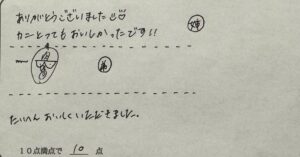 ありがとうございました
カニとってもおいしかったです!!
姉
弟
たいへんおいしくいただきました。
10点満点で 10 点